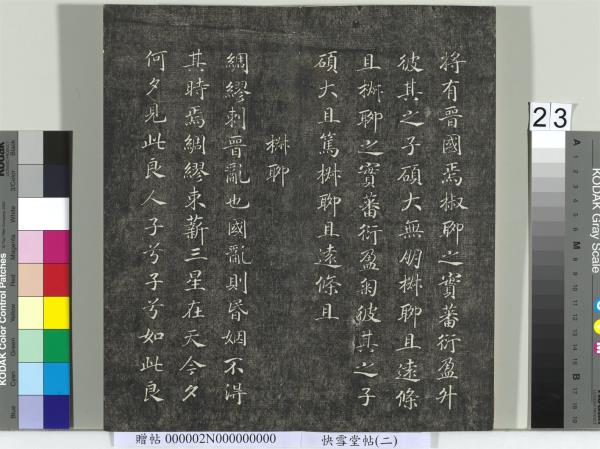 將有晉國焉椒聊之實蕃衍盈升
彼其之子碩大無朋椒聊且遠條
且椒聊之實蕃衍盈匊彼其之子
碩大且篤椒聊且遠條且
椒聊
綢繆刺晉亂也國亂則昏姻不得
其時焉綢繆束薪三星在天今夕
何夕見此良人子兮子兮如此良
23
KODAK Color Control Patches
Blue
Cyan
Green
Yellow
Red
Magenta
White
3/Color
Black
KODAK Gray Scale
A
1
2
3
4
5
6
M
8
9
10
11
12
13
14
15
B
17
18
19
贈帖 000002N000000000 快雪堂帖(二)